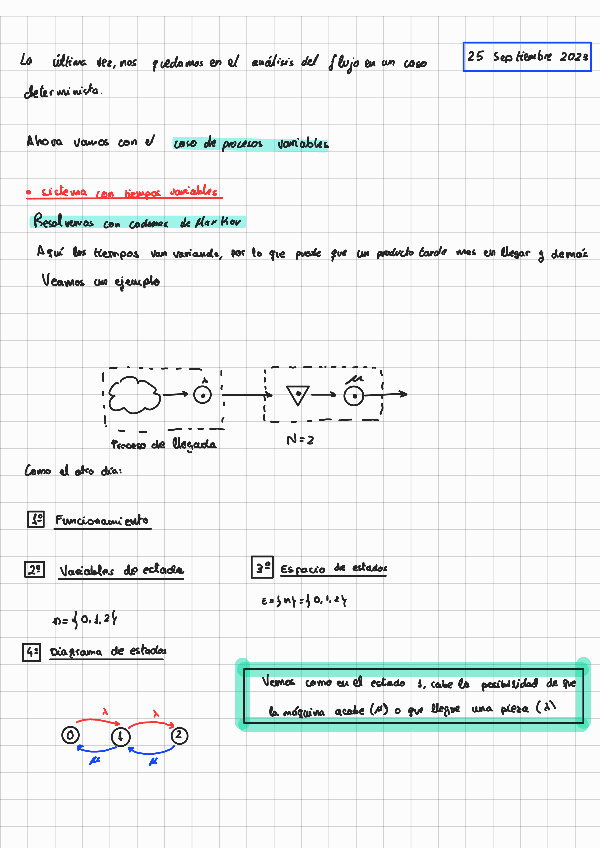 La última vez, nos quedamos en el análisis del flujo en un caso
determinista.
25 Septiembre 2023
Ahora vamos con el caso de procesos variables
• sistema con tiempos variables
Resolvemos con cadenas de Markov
Aquí los tiempos van variando, por lo que puede que un producto tarde mas en llegar y demás
Veamos un ejemplo
λ
μ
Proceso de llegada
N=2
Como el otro día:
1º Funcionamiento
2º Variables de estado
3º Espacio de estados
n={0,1,2}
E={n}={0,1,2}
4º Diagrama de estados
Vemos como en el estado 1, cabe la posibilidad de que
la máquina acabe (μ) o que llegue una pieza (λ)
λ λ
0 1 2
μ μ